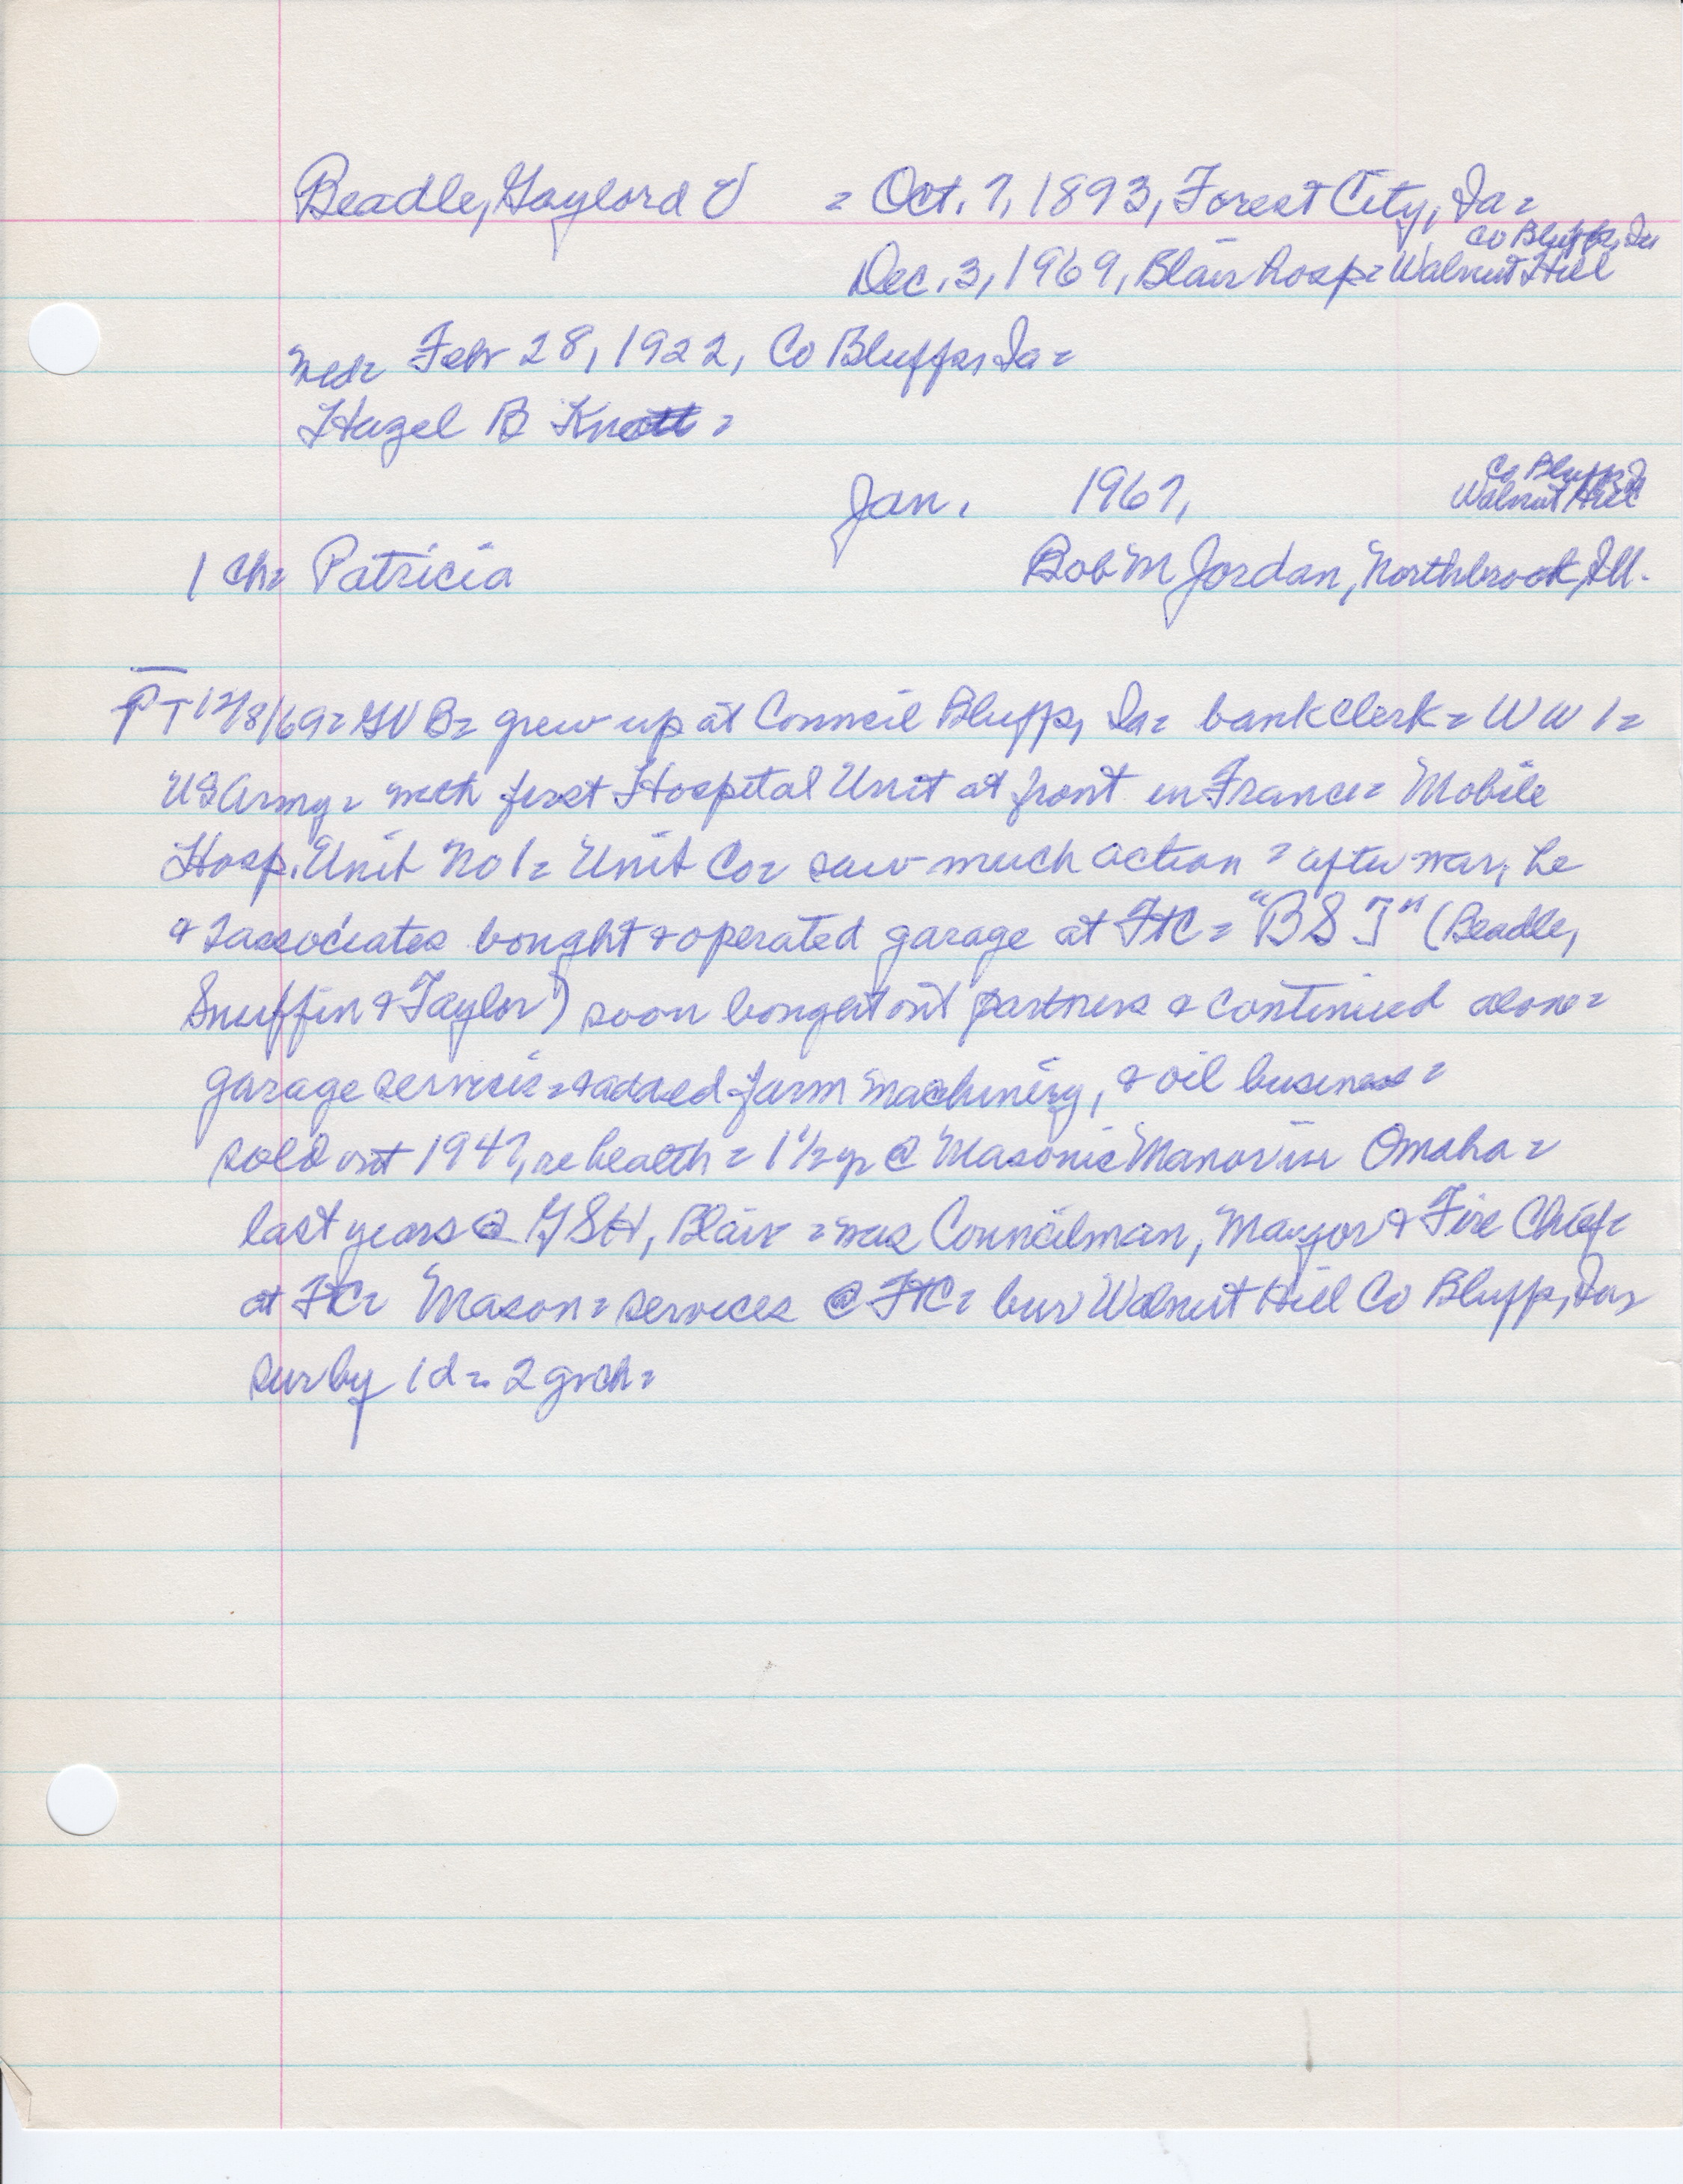 Beadle, Gaylord V = Oct. 7, 1893, Forest City, Ia =
Co Bluffs, Ia
Dec. 3, 1969, Blair hosp = Walnut Hill
md = Febr 28, 1922, Co Bluffs, Ia =
Hazel B Knott =
Co Bluffs, Ia
Jan. 1967, Walnut Hill
1 ch = Patricia Bob M Jordan, Northbrook, Ill.
PT 12/8/69 = GVB = grew up at Council Bluffs, Ia = bank clerk = WW 1 =
US Army = with first Hospital Unit at front in France = Mobile
Hosp. Unit No 1 = Unit Co = saw much action = after war, he
& 2 associates bought & operated garage at FtC = "BST" (Beadle,
Snuffin & Taylor) soon bought out partners & continued alone =
garage service = & added farm machinery, & oil business =
sold out 1947, re health = 1 1/2 yr @ Masonic Manor in Omaha =
last years @ GSH, Blair = was Councilman, Mayor & Fire Chief =
at FtC = Mason = services @ FtC = bur Walnut Hill Co Bluffs, Ia =
sur by 1 d = 2 grch =